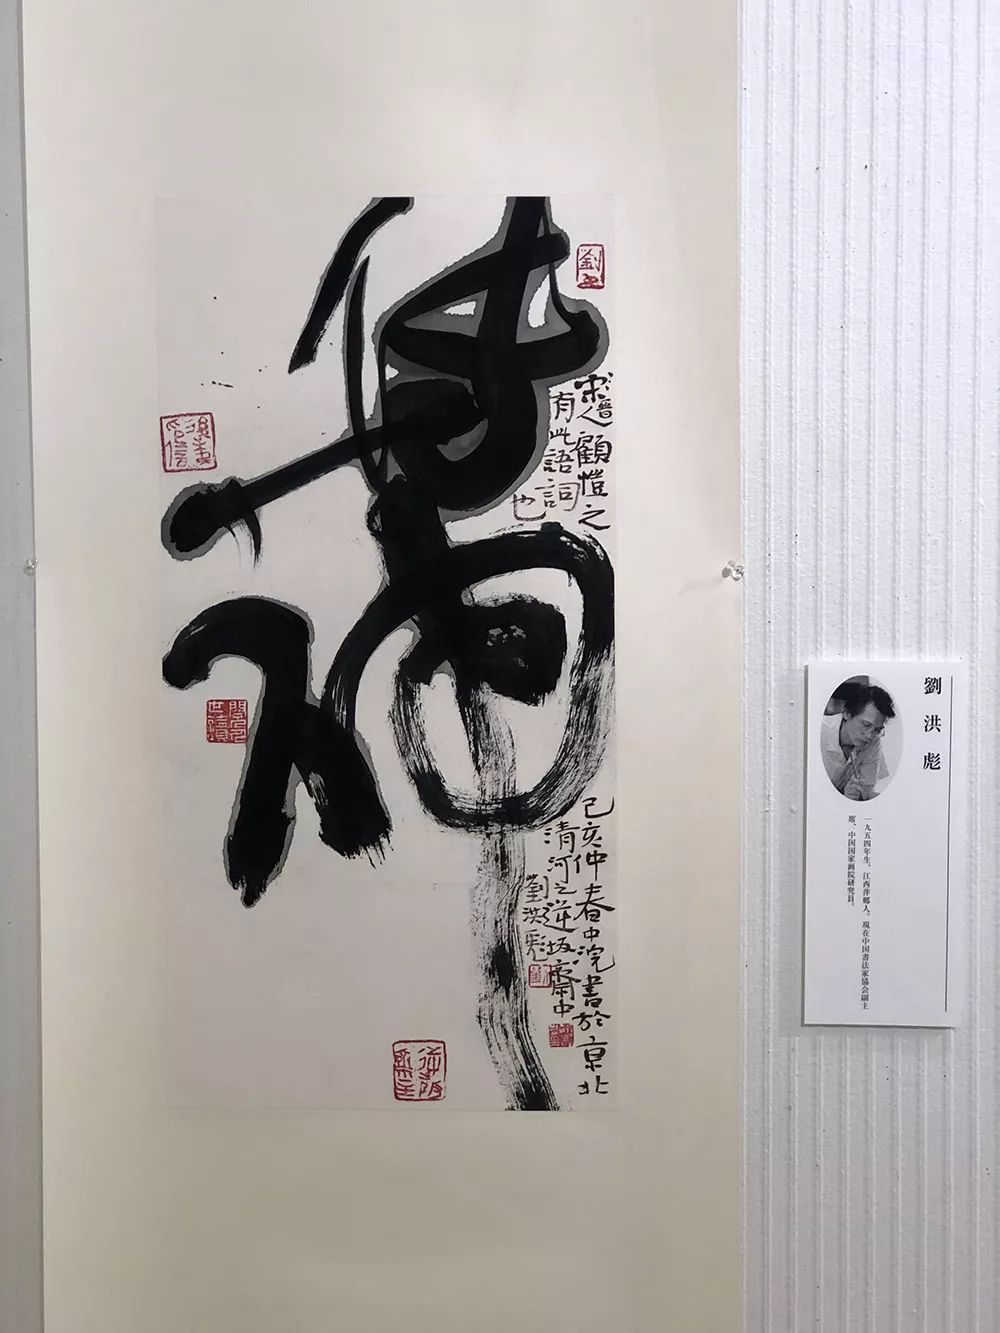 傳神
劉
宋人顧愷之
有此語詞
也
己亥仲春中浣書於京北
清河之逆坂齋中
劉洪彪
逆坂齋主
劉洪彪
一九五四年生，江西萍鄉人。現在中国書法家協会副主
席、中国国家画院研究員。